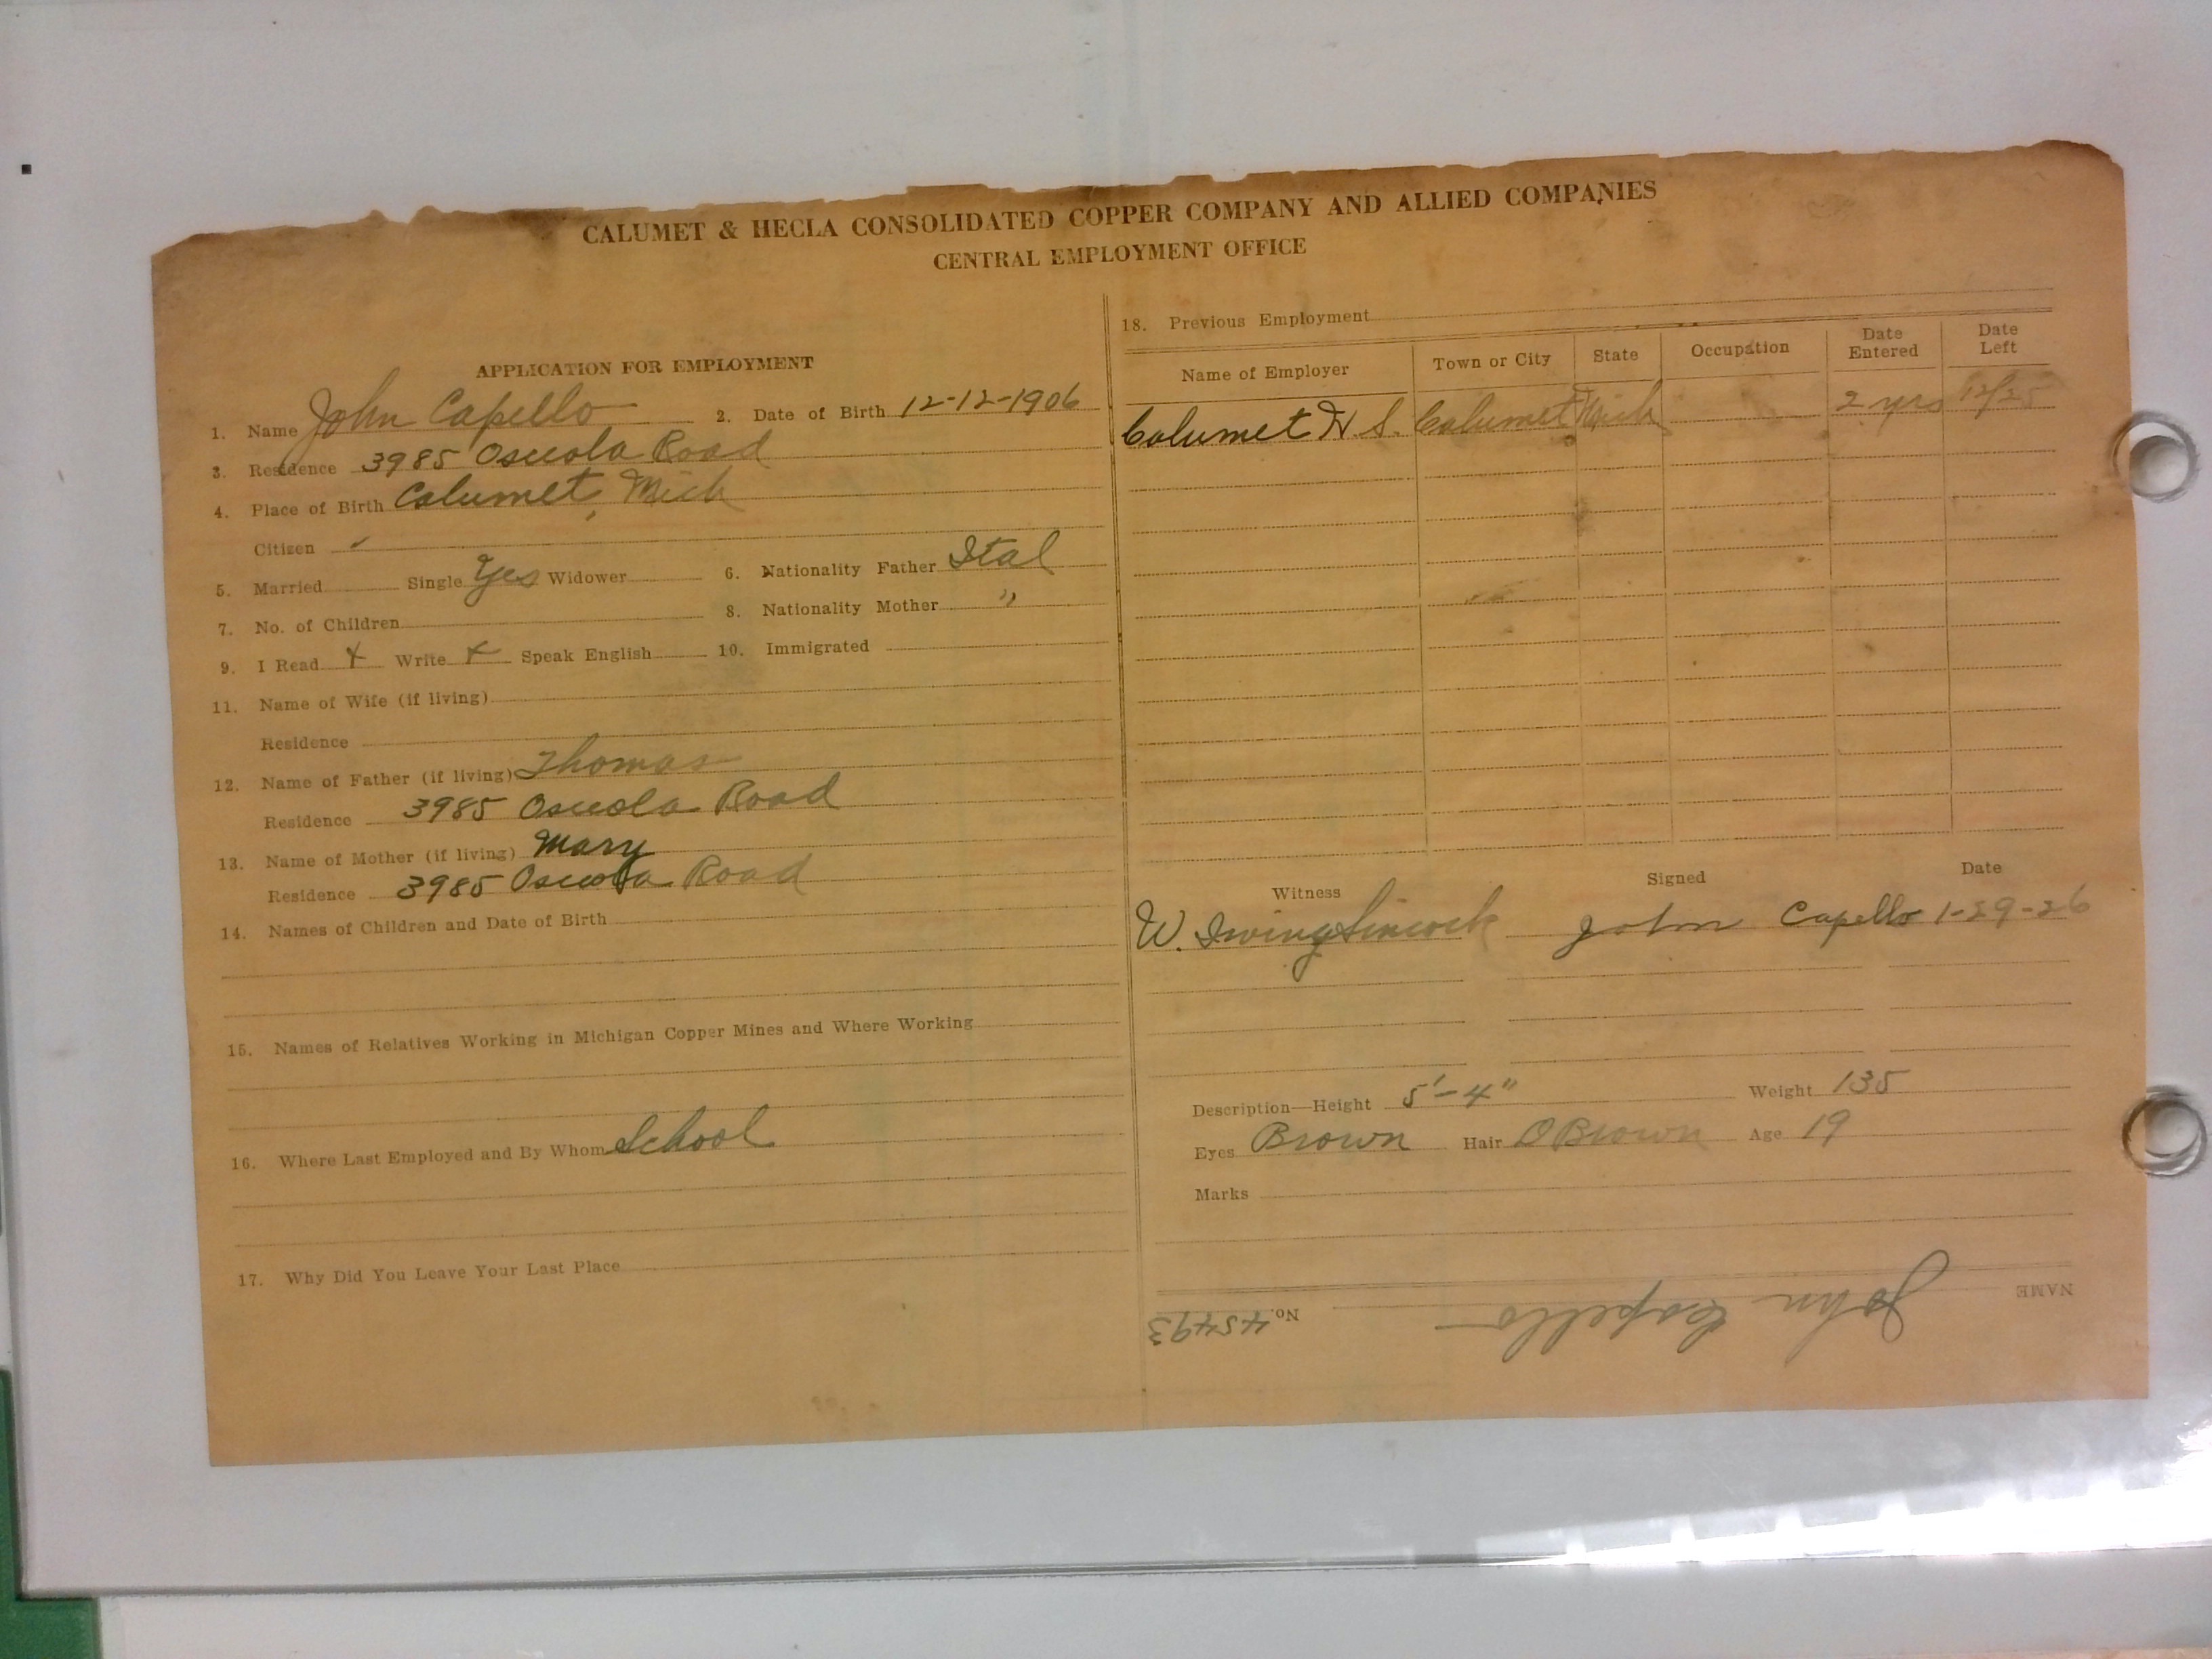 CALUMET & HECLA CONSOLIDATED COPPER COMPANY AND ALLIED COMPANIES
CENTRAL EMPLOYMENT OFFICE
APPLICATION FOR EMPLOYMENT
1. Name John Capello 2. Date of Birth 12-12-1906
3. Residence 3985 Osceola Road
4. Place of Birth Calumet, Mich
Citizen ✓
5. Married Single Yes Widower 6. Nationality Father Ital
7. No. of Children 8. Nationality Mother "
9. I Read X Write X Speak English 10. Immigrated
11. Name of Wife (if living)
Residence
12. Name of Father (if living) Thomas
Residence 3985 Osceola Road
13. Name of Mother (if living) Mary
Residence 3985 Osceola Road
14. Names of Children and Date of Birth
15. Names of Relatives Working in Michigan Copper Mines and Where Working
16. Where Last Employed and By Whom School
17. Why Did You Leave Your Last Place
18. Previous Employment
Name of Employer Town or City State Occupation Date Entered Date Left
Calumet H.S. Calumet Mich 2 yrs 12/25
Witness Signed Date
W. Irving Sincock John Capello 1-29-26
Description—Height 5'-4" Weight 135
Eyes Brown Hair D Brown Age 19
Marks
NAME John Capello No. 45493